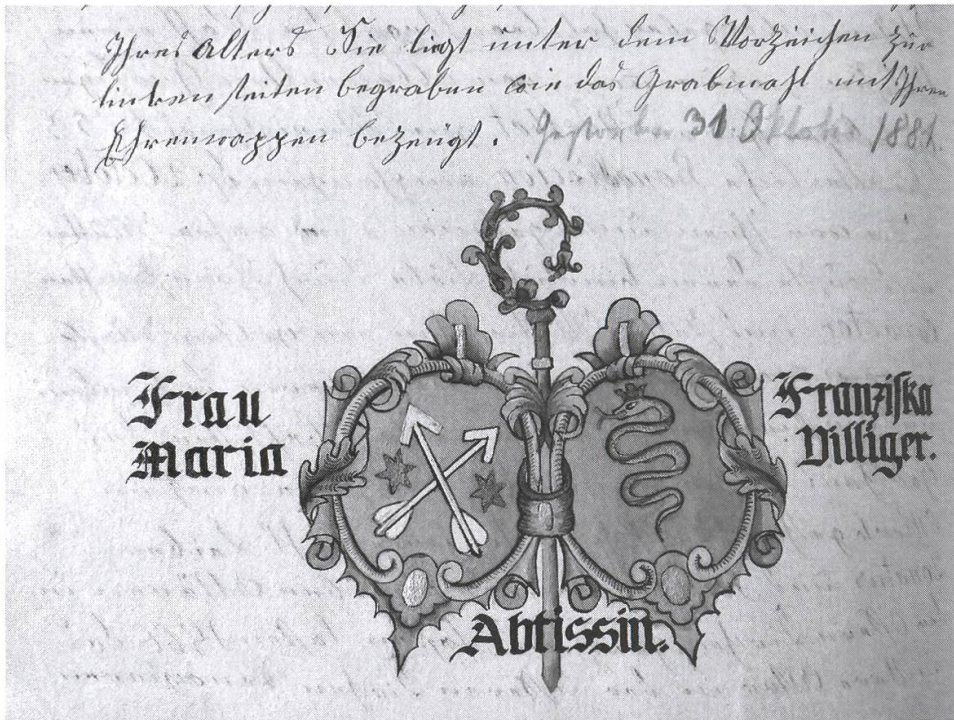 Ihres Alters Sie liegt unter dem Vorzeichen zur
linken seiten begraben wie das Grabmahl mit Ihren
Ehrenwappen bezeügt. Gestorben 31. Oktober 1881.
Frau
Maria
Franziska
Villiger.
Abtissin.